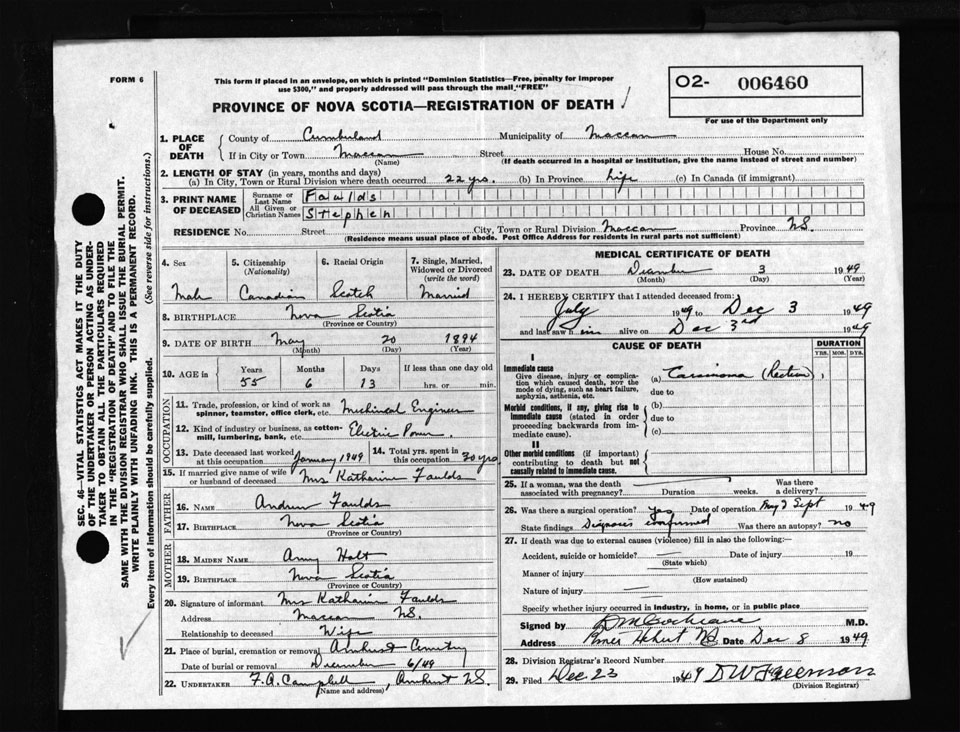 FORM 6
This form if placed in an envelope, on which is printed "Dominion Statistics—Free, penalty for improper
use $300," and properly addressed will pass through the mail "FREE"
PROVINCE OF NOVA SCOTIA—REGISTRATION OF DEATH
O2- 006460
For use of the Department only
1. PLACE OF DEATH
County of Cumberland Municipality of Maccan
If in City or Town Maccan Street House No.
(Name) (If death occurred in a hospital or institution, give the name instead of street and number)
2. LENGTH OF STAY (in years, months and days)
(a) In City, Town or Rural Division where death occurred 22 yrs. (b) In Province Life (c) In Canada (if immigrant)
3. PRINT NAME OF DECEASED
Surname or Last Name Faulds
All Given or Christian Names Stephen
RESIDENCE No. Street City, Town or Rural Division Maccan Province N.S.
(Residence means usual place of abode. Post Office Address for residents in rural parts not sufficient)
4. Sex 5. Citizenship (Nationality) 6. Racial Origin 7. Single, Married, Widowed or Divorced (write the word)
Male Canadian Scotch Married
8. BIRTHPLACE Nova Scotia
(Province or Country)
9. DATE OF BIRTH May 20 1894
(Month) (Day) (Year)
10. AGE in Years Months Days If less than one day old
55 6 13 hrs. or min.
OCCUPATION
11. Trade, profession, or kind of work as
spinner, teamster, office clerk, etc. Mechinical Engineer
12. Kind of industry or business, as cotton-
mill, lumbering, bank, etc. Electric Power.
13. Date deceased last worked
at this occupation January 1949
14. Total yrs. spent in
this occupation 30 yrs
15. If married give name of wife
or husband of deceased Mrs Katharine Faulds
FATHER
16. Name Andrew Faulds
17. Birthplace Nova Scotia
(Province or Country)
MOTHER
18. Maiden Name Amy Holt
19. Birthplace Nova Scotia
(Province or Country)
20. Signature of informant Mrs Katharine Faulds
Address Maccan N.S.
Relationship to deceased Wife
21. Place of burial, cremation or removal Amherst Cemetry
Date of burial or removal December 6/49
22. Undertaker F.A. Campbell, Amherst N.S.
(Name and address)
MEDICAL CERTIFICATE OF DEATH
23. DATE OF DEATH December 3 1949
(Month) (Day) (Year)
24. I HEREBY CERTIFY that I attended deceased from:
July 1949 to Dec 3 1949
and last saw him alive on Dec 3rd 1949
CAUSE OF DEATH DURATION
YRS. MOS. DYS.
I
Immediate cause
Give disease, injury or compli-
cation which caused death, NOT the
mode of dying, such as heart failure,
asphyxia, asthenia, etc.
(a) Carcinoma (Rectum)
due to
Morbid conditions, if any, giving rise to
immediate cause (stated in order
proceeding backwards from im-
mediate cause).
(b)
due to
(c)
II
Other morbid conditions (if important)
contributing to death but not
causally related to immediate cause.
25. If a woman, was the death
associated with pregnancy? Duration weeks. Was there
a delivery?
26. Was there a surgical operation? Yes Date of operation May & Sept 1949
State findings Diagnosis confirmed Was there an autopsy? no
27. If death was due to external causes (violence) fill in also the following:—
Accident, suicide or homicide? Date of injury 19
(State which)
Manner of injury
(How sustained)
Nature of injury
Specify whether injury occurred in industry, in home, or in public place
Signed by D M Cochrane M.D.
Address NS Date Dec 8 1949
28. Division Registrar's Record Number
29. Filed Dec 23 1949 D W Freeman
(Division Registrar)
SEC. 46—VITAL STATISTICS ACT MAKES IT THE DUTY
OF THE UNDERTAKER OR PERSON ACTING AS UNDER-
TAKER TO OBTAIN ALL THE PARTICULARS REQUIRED
IN THE "REGISTRATION OF DEATH" AND TO FILE THE
SAME WITH THE DIVISION REGISTRAR WHO SHALL ISSUE THE BURIAL PERMIT.
WRITE PLAINLY WITH UNFADING INK. THIS IS A PERMANENT RECORD.
Every item of information should be carefully supplied. (See reverse side for instructions.)